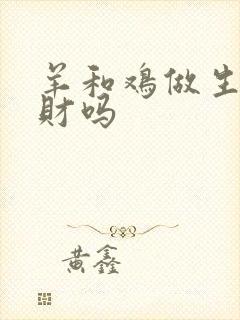 羊和鸡做生
财吗
黄鑫